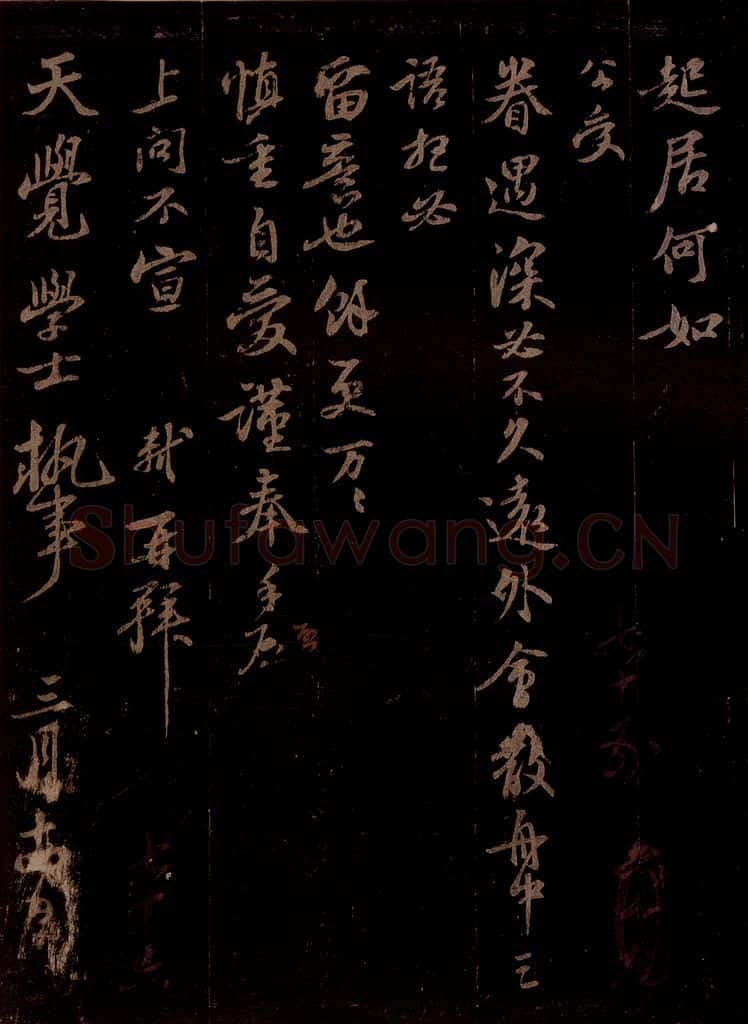 起居何如
公受
眷遇深必不久遠外會散舟中三
語想必
留意也餘更万々
慎重自愛謹奉手啓
上問不宣 軾再拜
天覺學士執事 三月十四日
Shufawang.CN